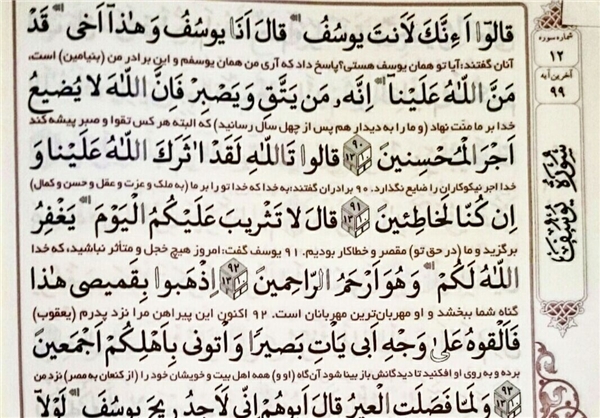 قالوا اَءِنَّكَ لَاَنتَ يوسُفُ قالَ اَنَا يوسُفُ وَهٰذا اَخى قَدْ
آنان گفتند: آیا تو همان یوسف هستی؟ پاسخ داد که آری من همان یوسفم و این برادر من (بنیامین) است
مَنَّ اللّٰهُ عَلَيْنا اِنَّهُ مَن يَتَّقِ وَيَصْبِرْ فَاِنَّ اللّٰهَ لا يُضيعُ
خدا بر ما منّت نهاد (و ما را به دیدار هم پس از چهل سال رسانید) که البته هر کس تقوا و صبر پیشه کند
اَجْرَ الْمُحْسِنينَ ۹۰ قالوا تَاللّٰهِ لَقَدْ اٰثَرَكَ اللّٰهُ عَلَيْنا وَ
خدا اجر نیکوکاران را ضایع نگذارد. ۹۰ برادران گفتند: به خدا که خدا تو را بر ما (به ملک و عزت و عقل و حسن و کمال)
اِن كُنّا لَخاطِئينَ ۹۱ قالَ لا تَثْريبَ عَلَيْكُمُ الْيَوْمَ يَغْفِرُ
برگزید و ما (در حق تو) مقصر و خطاکار بودیم. ۹۱ یوسف گفت: امروز هیچ خجل و متأثر نباشید، که خدا
اللّٰهُ لَكُمْ وَهُوَ اَرْحَمُ الرّاحِمينَ ۹۲ اِذْهَبوا بِقَميصى هٰذا
گناه شما ببخشد و او مهربان‌ترین مهربانان است. ۹۲ اکنون این پیراهن مرا نزد پدرم (یعقوب)
فَاَلْقوهُ عَلىٰ وَجْهِ اَبى يَأْتِ بَصيرًا وَأْتونى بِاَهْلِكُمْ اَجْمَعينَ
برده و به روی او افکنید تا دیدگانش باز بینا شود آن‌گاه (او و) همه اهل بیت و خویشان خود را (از کنعان به مصر) نزد من
۹۳ وَلَمّا فَصَلَتِ الْعيرُ قالَ اَبوهُمْ اِنّى لَاَجِدُ ريحَ يوسُفَ لَوْلا
شماره سوره
۱۲
آخرین آیه
۹۹
سُورَةُ يُوسُفَ